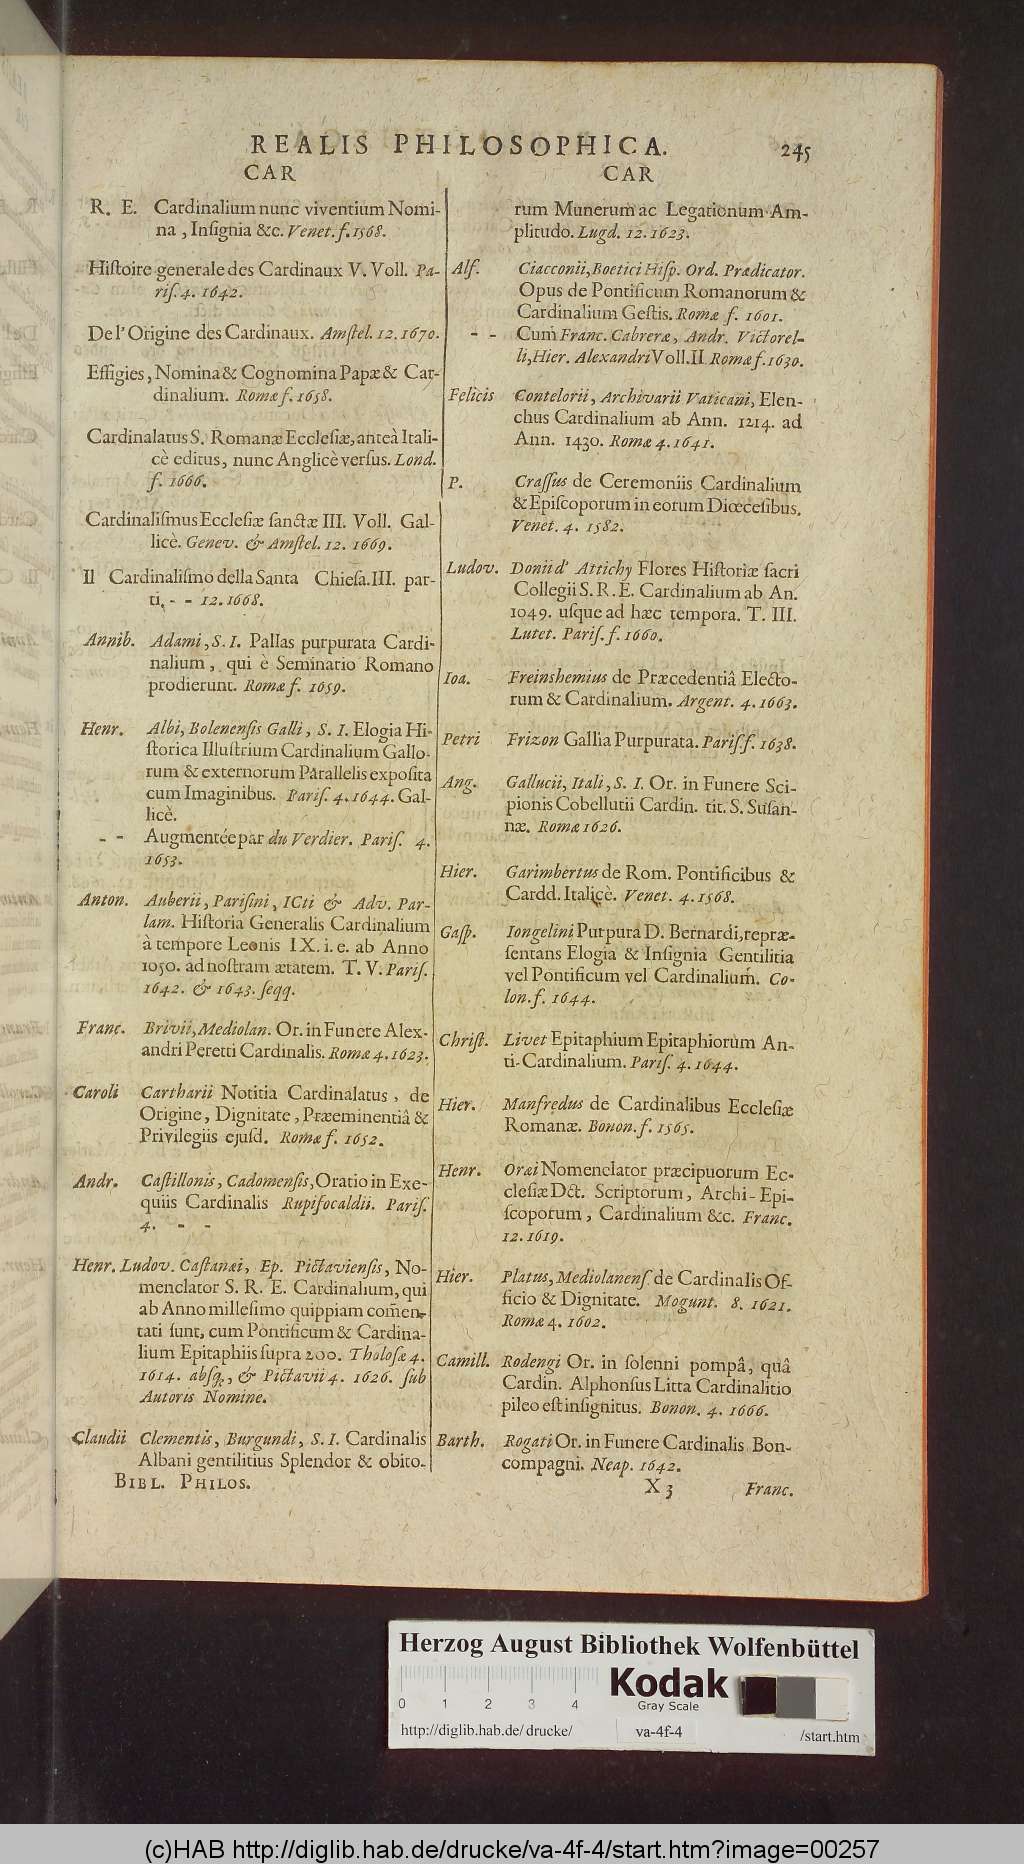 REALIS PHILOSOPHICA. 245
CAR
R. E. Cardinalium nunc viventium Nomi-
na, Inſignia &c. Venet. f. 1568.
Hiſtoire generale des Cardinaux V. Voll. Pa-
riſ. 4. 1642.
De l'Origine des Cardinaux. Amſtel. 12. 1670.
Effigies, Nomina & Cognomina Papæ & Car-
dinalium. Romæ f. 1658.
Cardinalatus S. Romanæ Eccleſiæ, anteà Itali-
cè editus, nunc Anglicè verſus. Lond.
f. 1666.
Cardinaliſmus Eccleſiæ ſanctæ III. Voll. Gal-
licè. Genev. & Amſtel. 12. 1669.
Il Cardinaliſmo della Santa Chieſa. III. par-
ti. - - 12. 1668.
Annib. Adami, S. I. Pallas purpurata Cardi-
nalium, qui è Seminario Romano
prodierunt. Romæ f. 1659.
Henr. Albi, Bolenenſis Galli, S. I. Elogia Hi-
ſtorica Illuſtrium Cardinalium Gallo-
rum & externorum Parallelis expoſita
cum Imaginibus. Pariſ. 4. 1644. Gal-
licè.
- - Augmentée par du Verdier. Pariſ. 4.
1653.
Anton. Auberii, Pariſini, ICti & Adv. Par-
lam. Hiſtoria Generalis Cardinalium
à tempore Leonis IX. i. e. ab Anno
1050. ad noſtram ætatem. T. V. Pariſ.
1642. & 1643. ſeqq.
Franc. Brivii, Mediolan. Or. in Funere Alex-
andri Peretti Cardinalis. Romæ 4. 1623.
Caroli Cartharii Notitia Cardinalatus, de
Origine, Dignitate, Præeminentiâ &
Privilegiis ejuſd. Romæ f. 1652.
Andr. Caſtillonis, Cadomenſis, Oratio in Exe-
quiis Cardinalis Rupifocaldii. Pariſ.
4. - -
Henr. Ludov. Caſtanæi, Ep. Pictavienſis, No-
menclator S. R. E. Cardinalium, qui
ab Anno milleſimo quippiam com̃en-
tati ſunt, cum Pontificum & Cardina-
lium Epitaphiis ſupra 200. Tholoſæ 4.
1614. abſq;, & Pictavii 4. 1626. ſub
Autoris Nomine.
Claudii Clementis, Burgundi, S. I. Cardinalis
Albani gentilitius Splendor & obito-
BIBL. PHILOS.
CAR
rum Munerum ac Legationum Am-
plitudo. Lugd. 12. 1623.
Alf. Ciacconii, Boetici Hiſp. Ord. Prædicator.
Opus de Pontificum Romanorum &
Cardinalium Geſtis. Romæ f. 1601.
- - Cum Franc. Cabreræ, Andr. Victorel-
li, Hier. Alexandri Voll. II. Romæ f. 1630.
Felicis Contelorii, Archivarii Vaticani, Elen-
chus Cardinalium ab Ann. 1214. ad
Ann. 1430. Romæ 4. 1641.
P. Craſſus de Ceremoniis Cardinalium
& Epiſcoporum in eorum Diœceſibus.
Venet. 4. 1582.
Ludov. Donii d' Attichy Flores Hiſtoriæ ſacri
Collegii S. R. E. Cardinalium ab An.
1049. uſque ad hæc tempora. T. III.
Lutet. Pariſ. f. 1660.
Ioa. Freinshemius de Præcedentiâ Electo-
rum & Cardinalium. Argent. 4. 1663.
Petri Frizon Gallia Purpurata. Pariſ. f. 1638.
Ang. Gallucii, Itali, S. I. Or. in Funere Sci-
pionis Cobellutii Cardin. tit. S. Suſan-
næ. Romæ 1626.
Hier. Garimbertus de Rom. Pontificibus &
Cardd. Italicè. Venet. 4. 1568.
Gaſp. Iongelini Purpura D. Bernardi, repræ-
ſentans Elogia & Inſignia Gentilitia
vel Pontificum vel Cardinalium. Co-
lon. f. 1644.
Chriſt. Livet Epitaphium Epitaphiorum An-
ti-Cardinalium. Pariſ. 4. 1644.
Hier. Manfredus de Cardinalibus Eccleſiæ
Romanæ. Bonon. f. 1565.
Henr. Oræi Nomenclator præcipuorum Ec-
cleſiæ Dct. Scriptorum, Archi-Epi-
ſcoporum, Cardinalium &c. Franc.
12. 1619.
Hier. Platus, Mediolanenſ de Cardinalis Of-
ficio & Dignitate. Mogunt. 8. 1621.
Romæ 4. 1602.
Camill. Rodengi Or. in ſolenni pompâ, quâ
Cardin. Alphonſus Litta Cardinalitio
pileo eſt inſignitus. Bonon. 4. 1666.
Barth. Rogati Or. in Funere Cardinalis Bon-
compagni. Neap. 1642.
X 3 Franc.
Herzog August Bibliothek Wolfenbüttel
0 1 2 3 4
Kodak
Gray Scale
http://diglib.hab.de/drucke/ va-4f-4 /start.htm
(c)HAB http://diglib.hab.de/drucke/va-4f-4/start.htm?image=00257